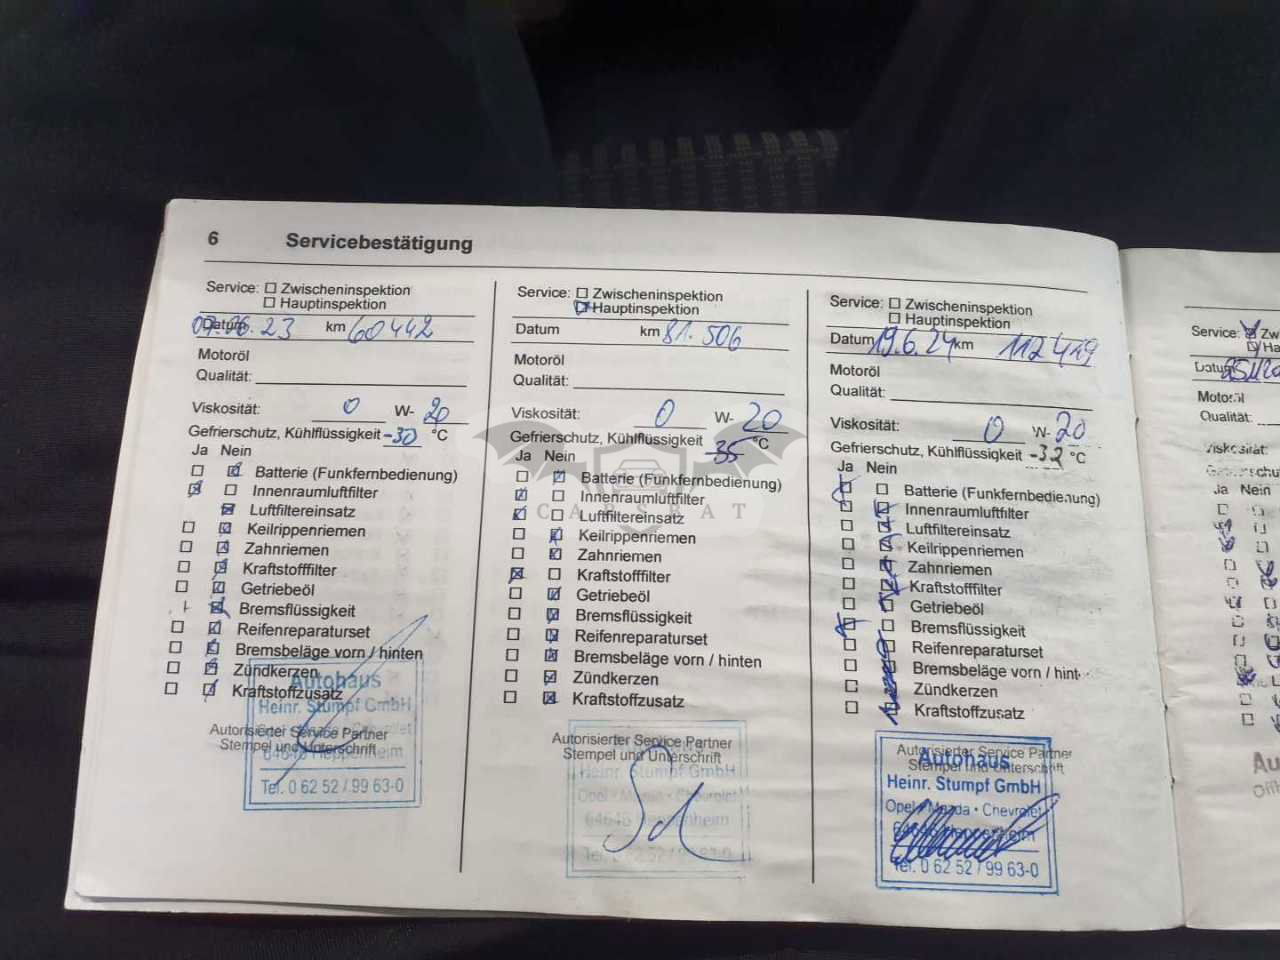 6 Servicebestätigung
Service: Zwischeninspektion
Hauptinspektion
Datum 07.06.23 km 60442
Motoröl
Qualität:
Viskosität: 0 W- 20
Gefrierschutz, Kühlflüssigkeit -30 °C
Ja Nein
Batterie (Funkfernbedienung)
Innenraumluftfilter
Luftfiltereinsatz
Keilrippenriemen
Zahnriemen
Kraftstofffilter
Getriebeöl
Bremsflüssigkeit
Reifenreparaturset
Bremsbeläge vorn / hinten
Zündkerzen
Kraftstoffzusatz
Autorisierter Service Partner
Stempel und Unterschrift
Autohaus
Heinr. Stumpf GmbH
64646 Heppenheim
Tel. 0 62 52 / 99 63-0
Service: Zwischeninspektion
Hauptinspektion
Datum km 81.506
Motoröl
Qualität:
Viskosität: 0 W- 20
Gefrierschutz, Kühlflüssigkeit -35 °C
Ja Nein
Batterie (Funkfernbedienung)
Innenraumluftfilter
Luftfiltereinsatz
Keilrippenriemen
Zahnriemen
Kraftstofffilter
Getriebeöl
Bremsflüssigkeit
Reifenreparaturset
Bremsbeläge vorn / hinten
Zündkerzen
Kraftstoffzusatz
Autorisierter Service Partner
Stempel und Unterschrift
Heinr. Stumpf GmbH
Opel • Mazda • Chevrolet
64646 Heppenheim
Tel. 0 62 52 / 99 63-0
CARSBAT
Service: Zwischeninspektion
Hauptinspektion
Datum 19.6.24 km 112419
Motoröl
Qualität:
Viskosität: 0 W- 20
Gefrierschutz, Kühlflüssigkeit -32 °C
Ja Nein
Batterie (Funkfernbedienung)
Innenraumluftfilter
Luftfiltereinsatz
Keilrippenriemen
Zahnriemen
Kraftstofffilter
Getriebeöl
Bremsflüssigkeit
Reifenreparaturset
Bremsbeläge vorn / hint
Zündkerzen
Kraftstoffzusatz
Autorisierter Service Partner
Stempel und Unterschrift
Autohaus
Heinr. Stumpf GmbH
Opel • Mazda • Chevrolet
64646 Heppenheim
Tel. 0 62 52 / 99 63-0
Service: Zw
Ha
Datum
Motoröl
Qualität:
Viskosität:
Ja Nein
Au